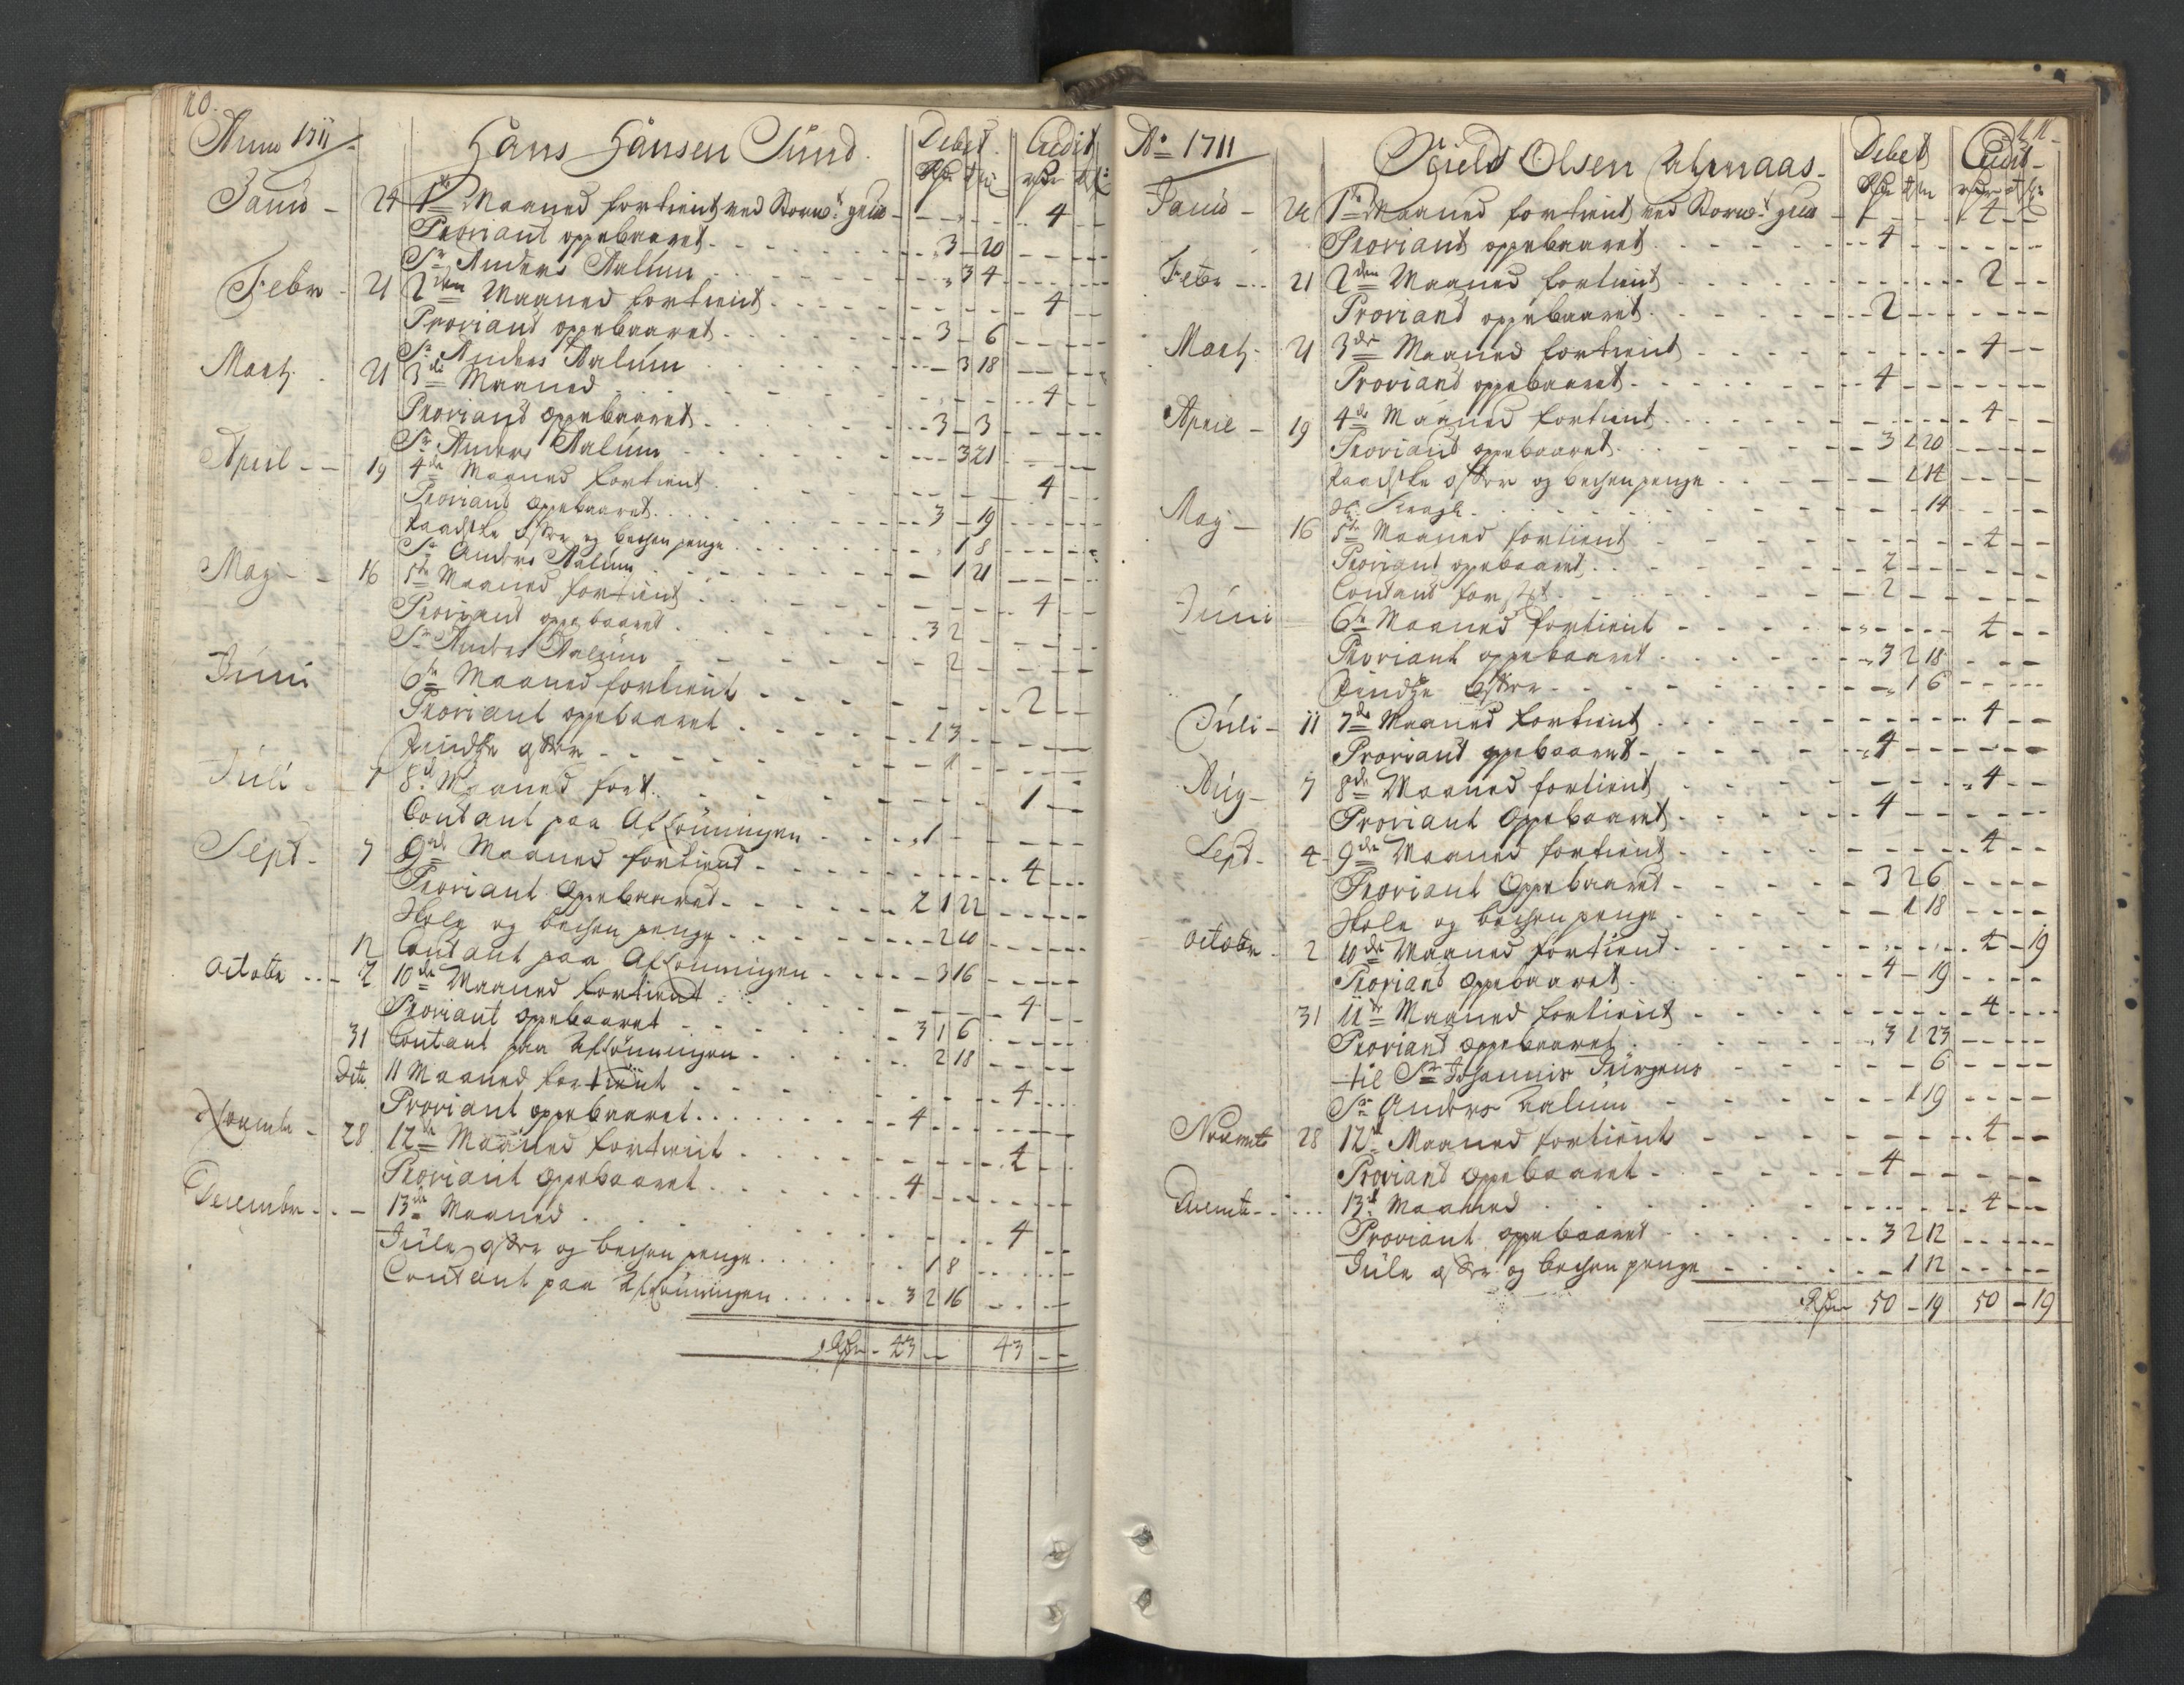 20.
Anno 1711
Hans Hansen Sund.
Debet. Credit
Rdr rt s Rdr rt s
Janü - 24 1te Maaned fortient ved Storw: grub - - - - 4 - -
Proviant oppebaaret - - - 3 - 20 - - -
Sr Anders Aalum - - - - 3 4 - - -
Febr - 21 2den Maaned fortient - - - - 4 - -
Proviand oppebaaret - - - 3 - 6 - - -
Sr Anders Aalum - - - - 3 18 - - -
Marty - 21 3de Maaned - - - - 4 - -
Proviand oppebaaret - - - 3 - 3 - - -
Sr Anders Aalüm - - - - 3 21 - - -
April - - 19 4de Maaned fortient - - - - 4 - -
Proviand oppebaaret - - - 3 - 19 - - -
Paadske offer og bechen penge - - - 1 8 - - -
Sr Anders Aalüm - - - - 1 21 - - -
May - - 16 5te Maaned fortient - - - - 4 - -
Proviand oppebaaret - - - 3 2 - - - -
Sr Anders Aalüm - - - - 2 - - - -
Jüni 6te Maaned fortient - - - - 2 - -
Proviant oppebaaret - - - 1 3 - - - -
Pindse offer - - - 1 - - - -
Juli - 7 8de Maaned fort. - - - - 1 - -
Contant paa Aflönningen - - - 1 - - - -
Sept - 7 9de Maaned fortient - - - - 4 - -
Proviant Oppebaaret - - - 2 1 22 - - -
Hole og bechen penge - - - 2 10 - - -
12 Contant paa Aflönningen - - - 3 16 - - -
Octobr - - 2 10de Maaned fortient - - - - 4 - -
Proviant oppebaaret - - - 3 1 6 - - -
31 Contant paa Aflönningen - - - 2 18 - - -
Dito 11 Maaned fortient - - - - 4 - -
Proviant oppebaaret - - - 4 - - - -
Novembr - 28 12de Maaned fortient - - - - 4 - -
Proviant oppebaaret - - - 4 - - - -
Decembr - - - 13de Maaned - - - - 4 - -
Jüle offer og bechen penge - - - 1 8 - - -
Contant paa Aflönningen - - - 3 2 16 - - -
Rdr - 43 - 43 - -
21
Ao 1711
Kield Olsen Aalmaas
Debet Credit
Rdr rt s Rdr rt s
Janü - 24 1te Maaned fortient ved Storw: grub - - - - 4 - -
Proviant oppebaaret - - - 4 - - - -
Febr - - 21 2den Maaned fortient - - - - 2 - -
Proviand oppebaaret - - - 2 - - - -
Marty - 21 3de Maaned fortient - - - - 4 - -
Proviand oppebaaret - - - 4 - - - -
April - 19 4de Maaned fortient - - - - 4 - -
Proviand oppebaaret - - - 3 1 20 - - -
Paadske offer og bechen penge - - - 1 14 - - -
- - - 14 - - -
May - 16 5te Maaned fortient - - - - 4 - -
Proviant oppebaaret - - - 2 - - - -
Contant - - - 2 - - - -
Jüni 6te Maaned fortient - - - - 4 - -
Proviant oppebaaret - - - 3 2 18 - - -
Pindse offer - - - 1 6 - - -
Jüli - 11 7de Maaned fortient - - - - 4 - -
Proviant oppebaaret - - - 4 - - - -
Aüg - 7 8de Maaned fortient - - - - 4 - -
Proviant Oppebaaret - - - 4 - - - -
Sept - 4 9de Maaned fortient - - - - 4 - -
Proviant Oppebaaret - - - 3 2 6 - - -
Hole og bechen penge - - - 1 18 - - -
Octobr - 2 10de Maaned fortient - - - - 4 - 19
Proviand oppebaaret - - - 4 - 19 - - -
31 11te Maaned fortient - - - - 4 - -
Proviand oppebaaret - - - 3 1 23 - - -
til Sr Johannis Jürgens - - - 6 - - -
Sr Anders Aalüm - - - 1 19 - - -
Novembr 28 12te Maaned fortient - - - - 4 - -
Proviand oppebaaret - - - 4 - - - -
Decembr - - 13de Maaned - - - - 4 - -
Proviant oppebaaret - - - 3 2 12 - - -
Jüle offer og bechen penge - - - 1 12 - - -
Rdr 50 - 19 50 - 19